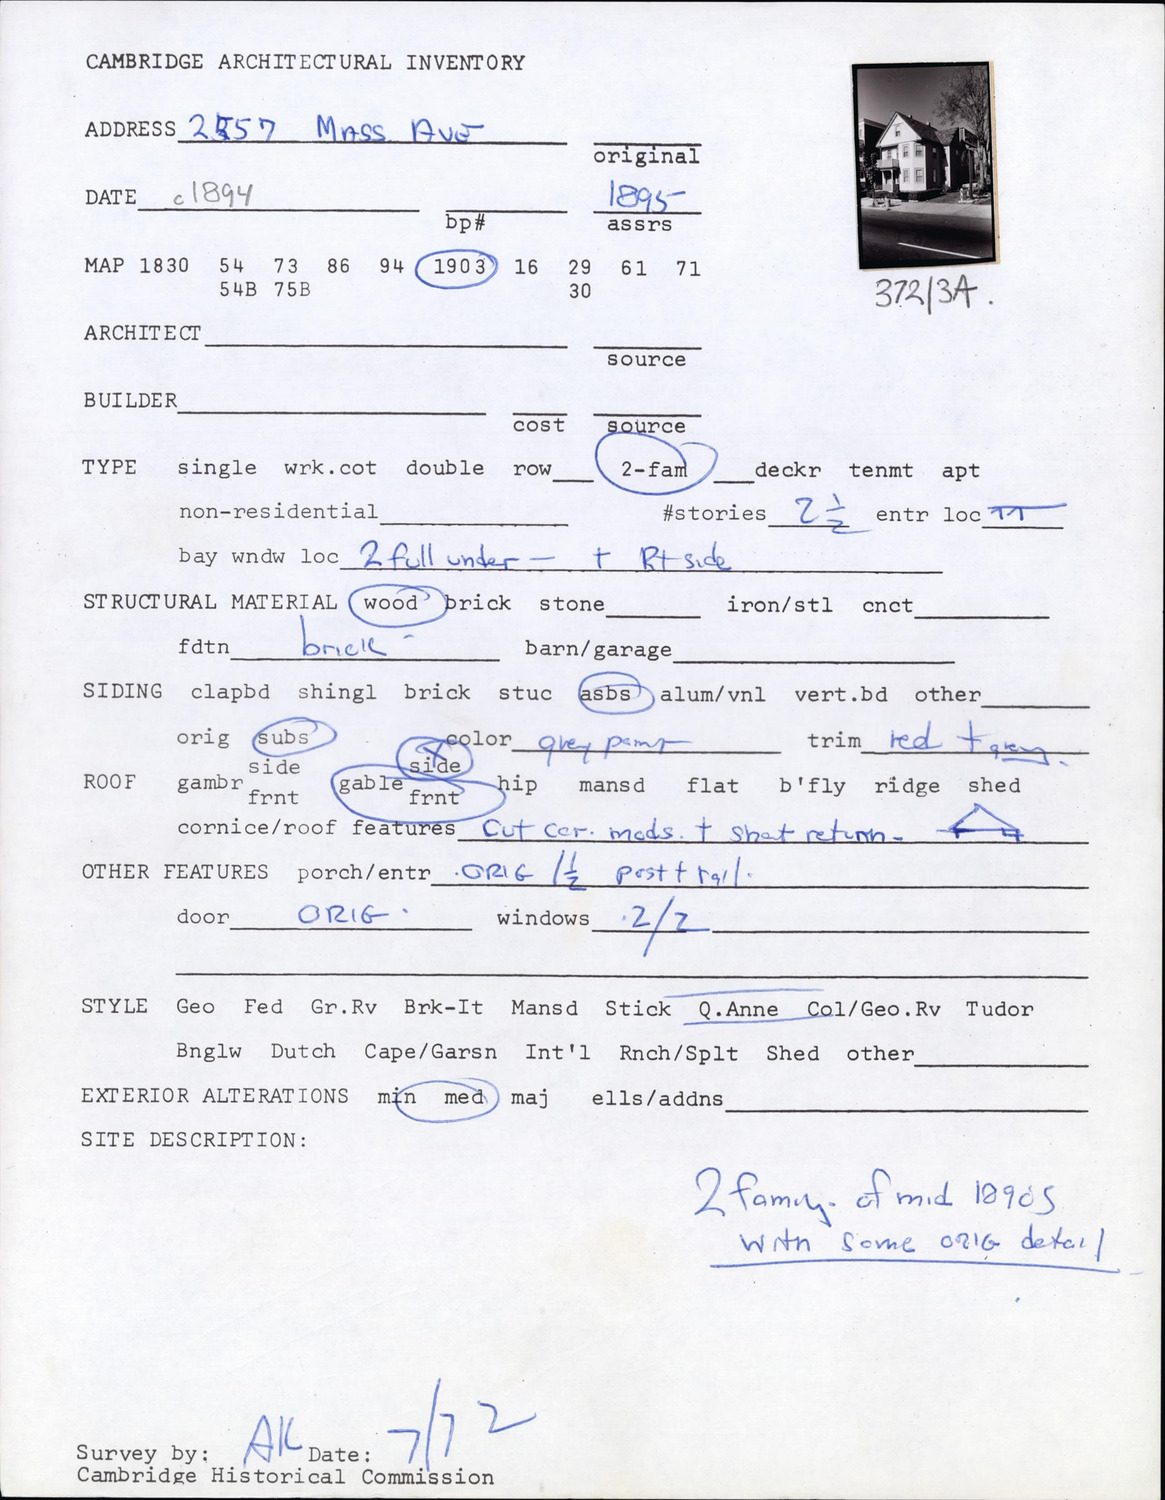 CAMBRIDGE ARCHITECTURAL INVENTORY
ADDRESS 2557 Mass Ave
original
DATE c1894 1895
bp# assrs
MAP 1830 54 73 86 94 1903 16 29 61 71
54B 75B 30
372/3A.
ARCHITECT
source
BUILDER
cost source
TYPE single wrk.cot double row 2-fam deckr tenmt apt
non-residential #stories 2 1/2 entr loc
bay wndw loc 2 full under — + Rt side
STRUCTURAL MATERIAL wood brick stone iron/stl cnct
fdtn brick barn/garage
SIDING clapbd shingl brick stuc asbs alum/vnl vert.bd other
orig subs color grey trim red + grey.
side side
ROOF gambr gable hip mansd flat b'fly ridge shed
frnt frnt
cornice/roof features Cut cor. mods. + return-
OTHER FEATURES porch/entr ORIG 1 1/2 post + rail.
door ORIG. windows 2/2
STYLE Geo Fed Gr.Rv Brk-It Mansd Stick Q.Anne Col/Geo.Rv Tudor
Bnglw Dutch Cape/Garsn Int'l Rnch/Splt Shed other
EXTERIOR ALTERATIONS min med maj ells/addns
SITE DESCRIPTION:
2 family. of mid 1890s
with some ORIG detail
Survey by: AK Date: 7/72
Cambridge Historical Commission